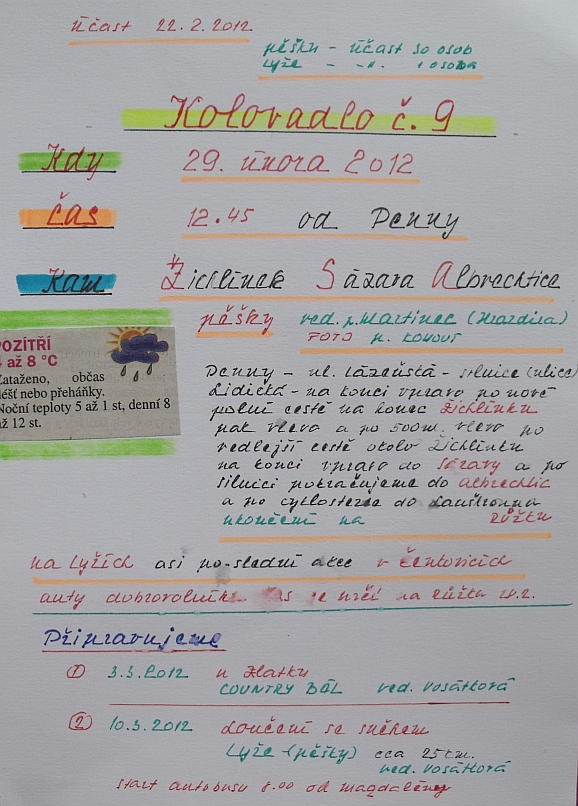 Účast 22.2.2012
pěšky - účast 30 osob
lyže - -"- 1 osoba
Kolovadlo č. 9
Kdy 29. února 2012
čas 12.45 od Penny
Kam Žichlínek Sázava Albrechtice
pěšky ved. p. Martinec (Hrazdira)
FOTO p. KOHOUT
POZÍTŘÍ
4 až 8 °C
Zataženo, občas
déšť nebo přeháňky.
Noční teploty 5 až 1 st, denní 8
až 12 st.
Penny - ul. Lázeňská - silnice (ulice)
Lidická - na konci vpravo po nové
polní cestě na konec Žichlínku
pak vlevo a po 500m. vlevo po
vedlejší cestě okolo Žichlínku
na konci vpravo do Sázavy a po
silnici pokračujeme do Albrechtic
a po cyklostezce do Lanškrouna
ukončení na Růžku
na lyžích asi poslední akce v Čenkovicích
auty dobrovolníků čas se určí na Růžku
Připravujeme
① 3.3.2012 u Zlatky
COUNTRY BÁL ved. Vosátková
② 10.3.2012 Loučení se sněhem
Lyže (pěšky) cca 25km.
ved. Vosátková
start autobusu 8.00 od Magdalény